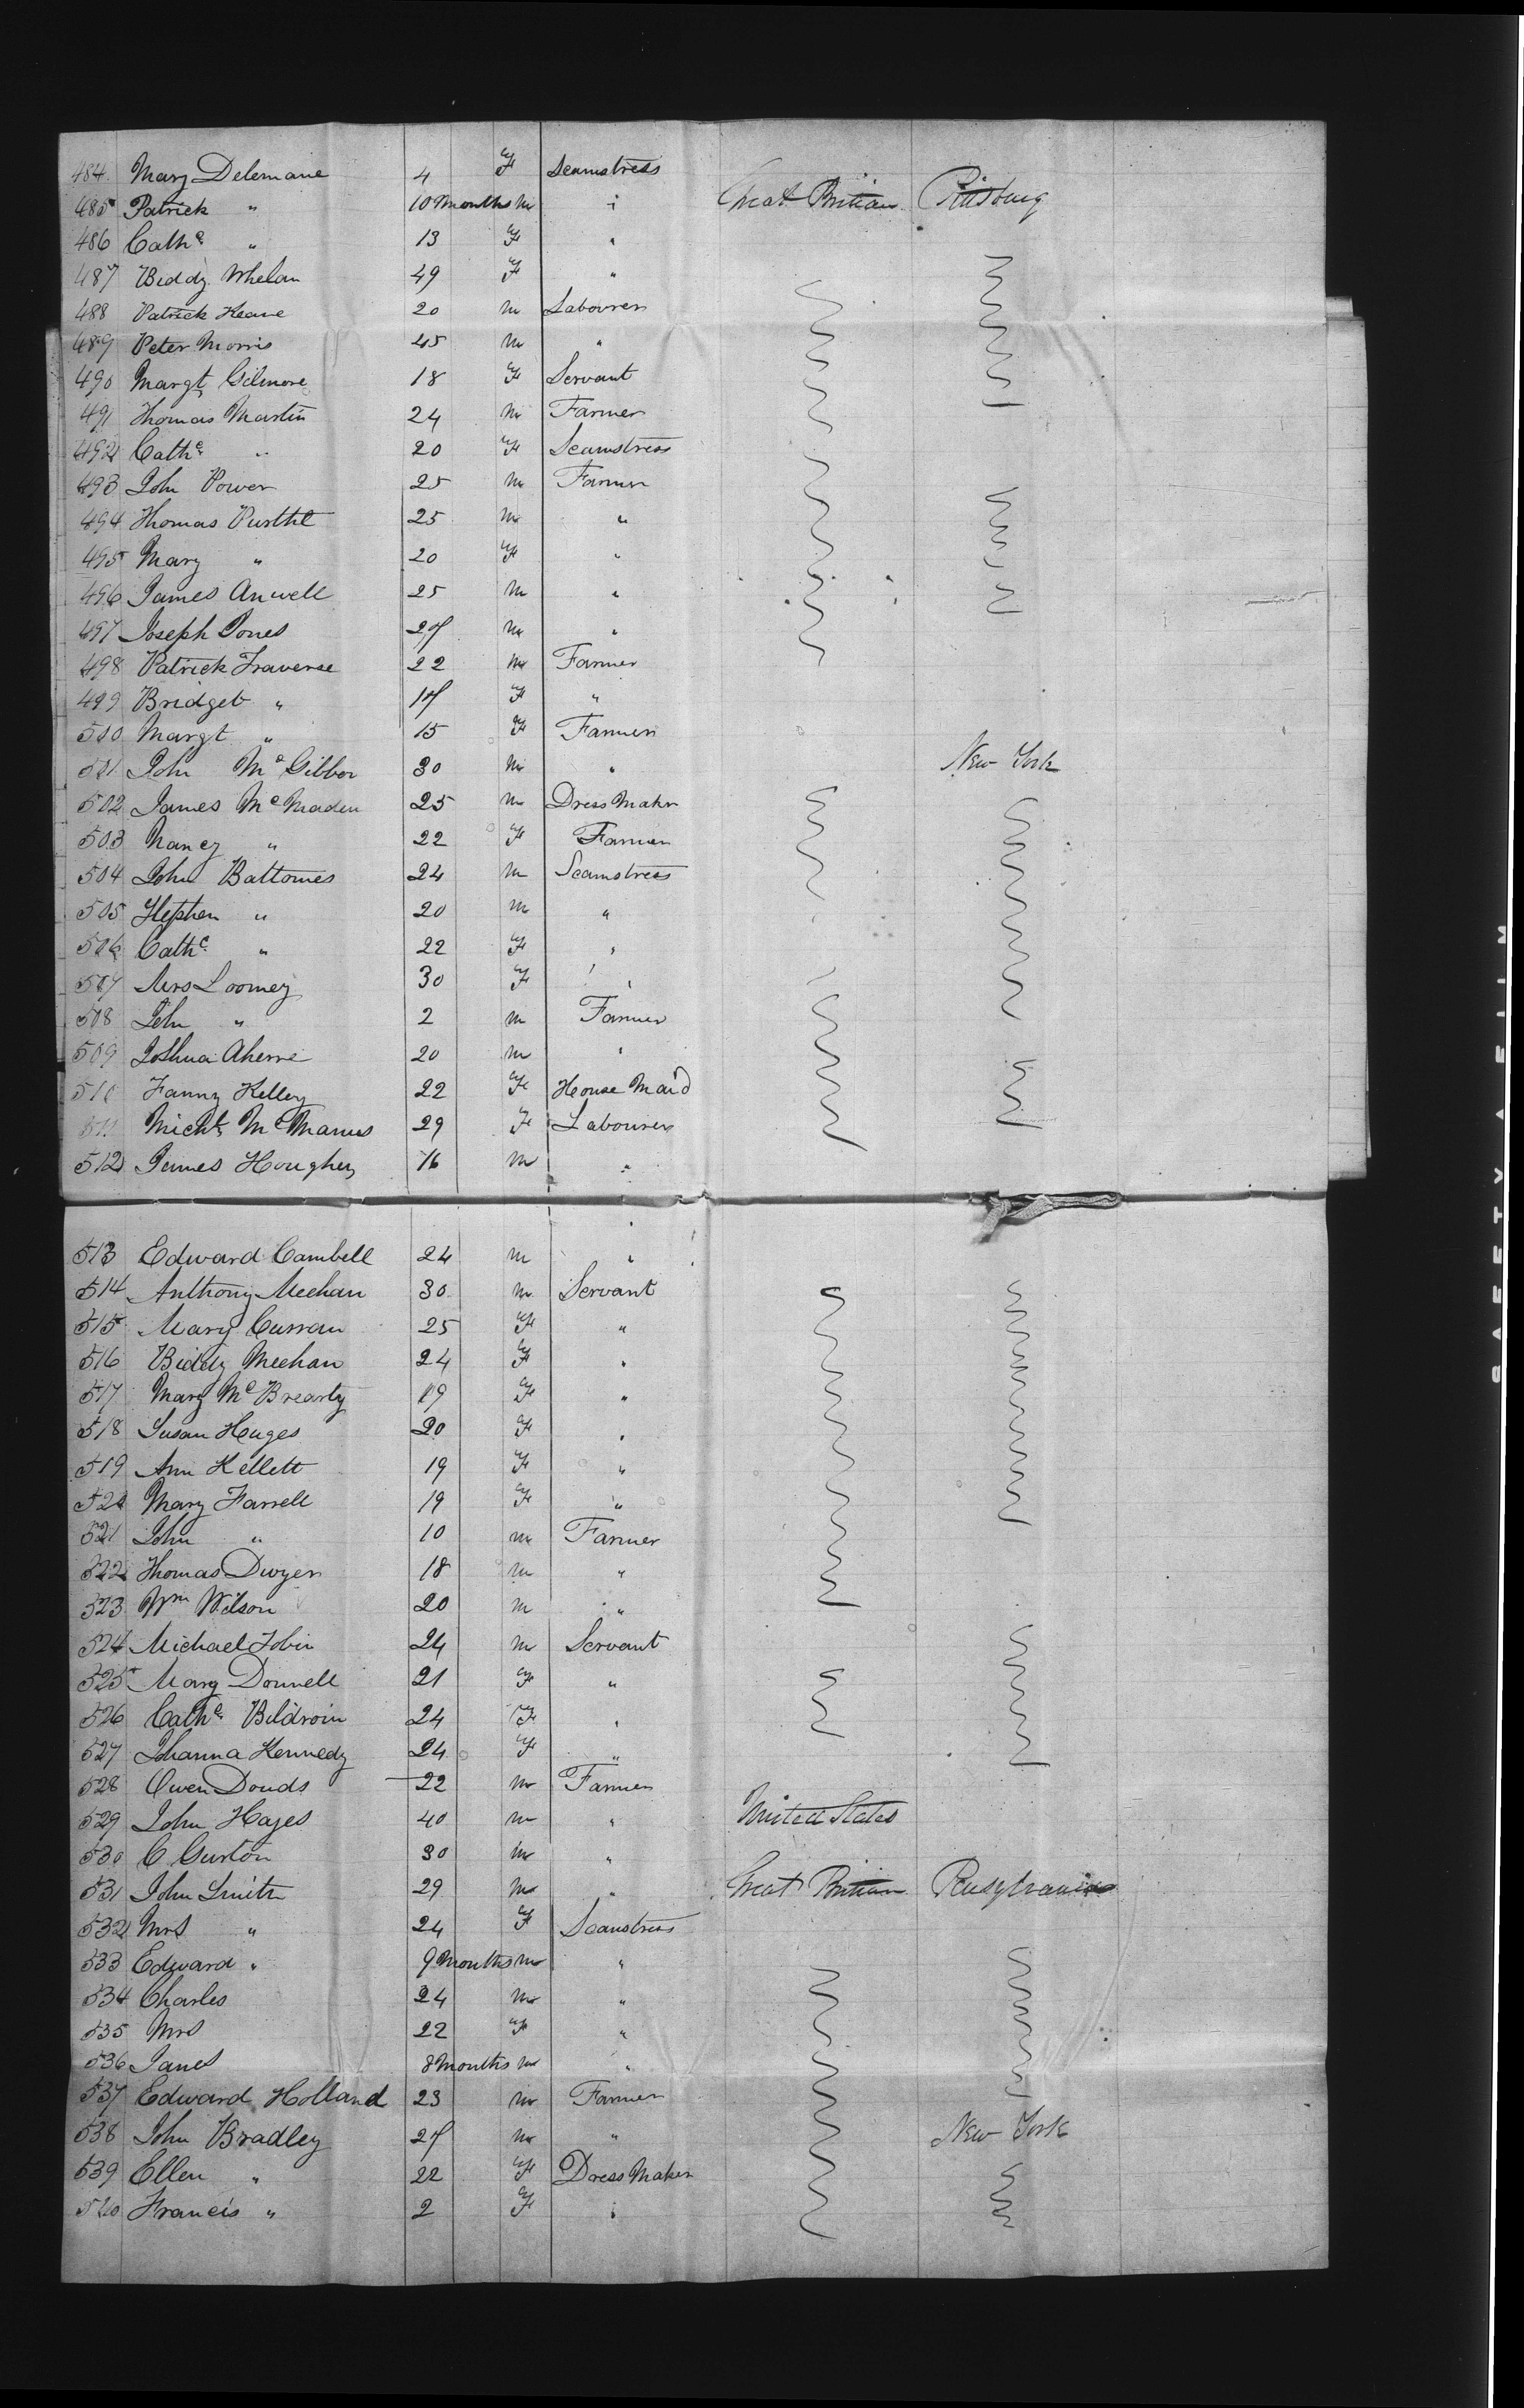 484 Mary Delemane 4 F Seamstress
485 Patrick " 10 Months M " Great Britian Pittsburg
486 Cathe " 13 F "
487 Biddy Whelan 49 F "
488 Patrick Keane 20 M Labourer
489 Peter Morris 45 M "
490 Margt Gilmore 18 F Servant
491 Thomas Martin 24 M Farmer
492 Cathe " 20 F Seamstress
493 John Power 25 M Farmer
494 Thomas 25 M "
495 Mary " 20 F "
496 James Anwell 25 M "
497 Joseph Jones 27 M "
498 Patrick Traverse 22 M Farmer
499 Bridget " 17 F "
500 Margt " 15 F Farmer
501 John Mc Gibbon 30 M " New York
502 James Mc Maden 25 M Dress Maker
503 Nancy " 22 F Farmer
504 John Battomes 24 M Seamstress
505 Stephen " 20 M "
506 Cathe " 22 F "
507 Mrs Loomey 30 F "
508 John " 2 M Farmer
509 Joshua Aherne 20 M "
510 Fanny Kelley 22 F House Maid
511 Michl Mc Manus 29 F Labourer
512 James Houghey 16 M "
513 Edward Cambell 24 M "
514 Anthony Meehan 30 M Servant
515 Mary Curran 25 F "
516 Biddy Meehan 24 F "
517 Mary Mc Brearty 19 F "
518 Susan Huges 20 F "
519 Ann Kellett 19 F "
520 Mary Farrell 19 F "
521 John " 10 M Farmer
522 Thomas Dwyer 18 M "
523 Wm Wilson 20 M "
524 Michael Tobin 24 M Servant
525 Mary Donnell 21 F "
526 Cathe Bildroin 24 F "
527 Johanna Kennedy 24 F "
528 Owen Douds 22 M Farmer
529 John Hayes 40 M " United States
530 C Gurton 30 M "
531 John Smith 29 M " Great Britian Pensylvania
532 Mrs " 24 F Seamstress
533 Edward " 9 Months M "
534 Charles 24 M "
535 Mrs 22 F "
536 James 8 Months M "
537 Edward Holland 23 M Farmer
538 John Bradley 27 M " New York
539 Ellen " 22 F Dress Maker
540 Francis " 2 F "